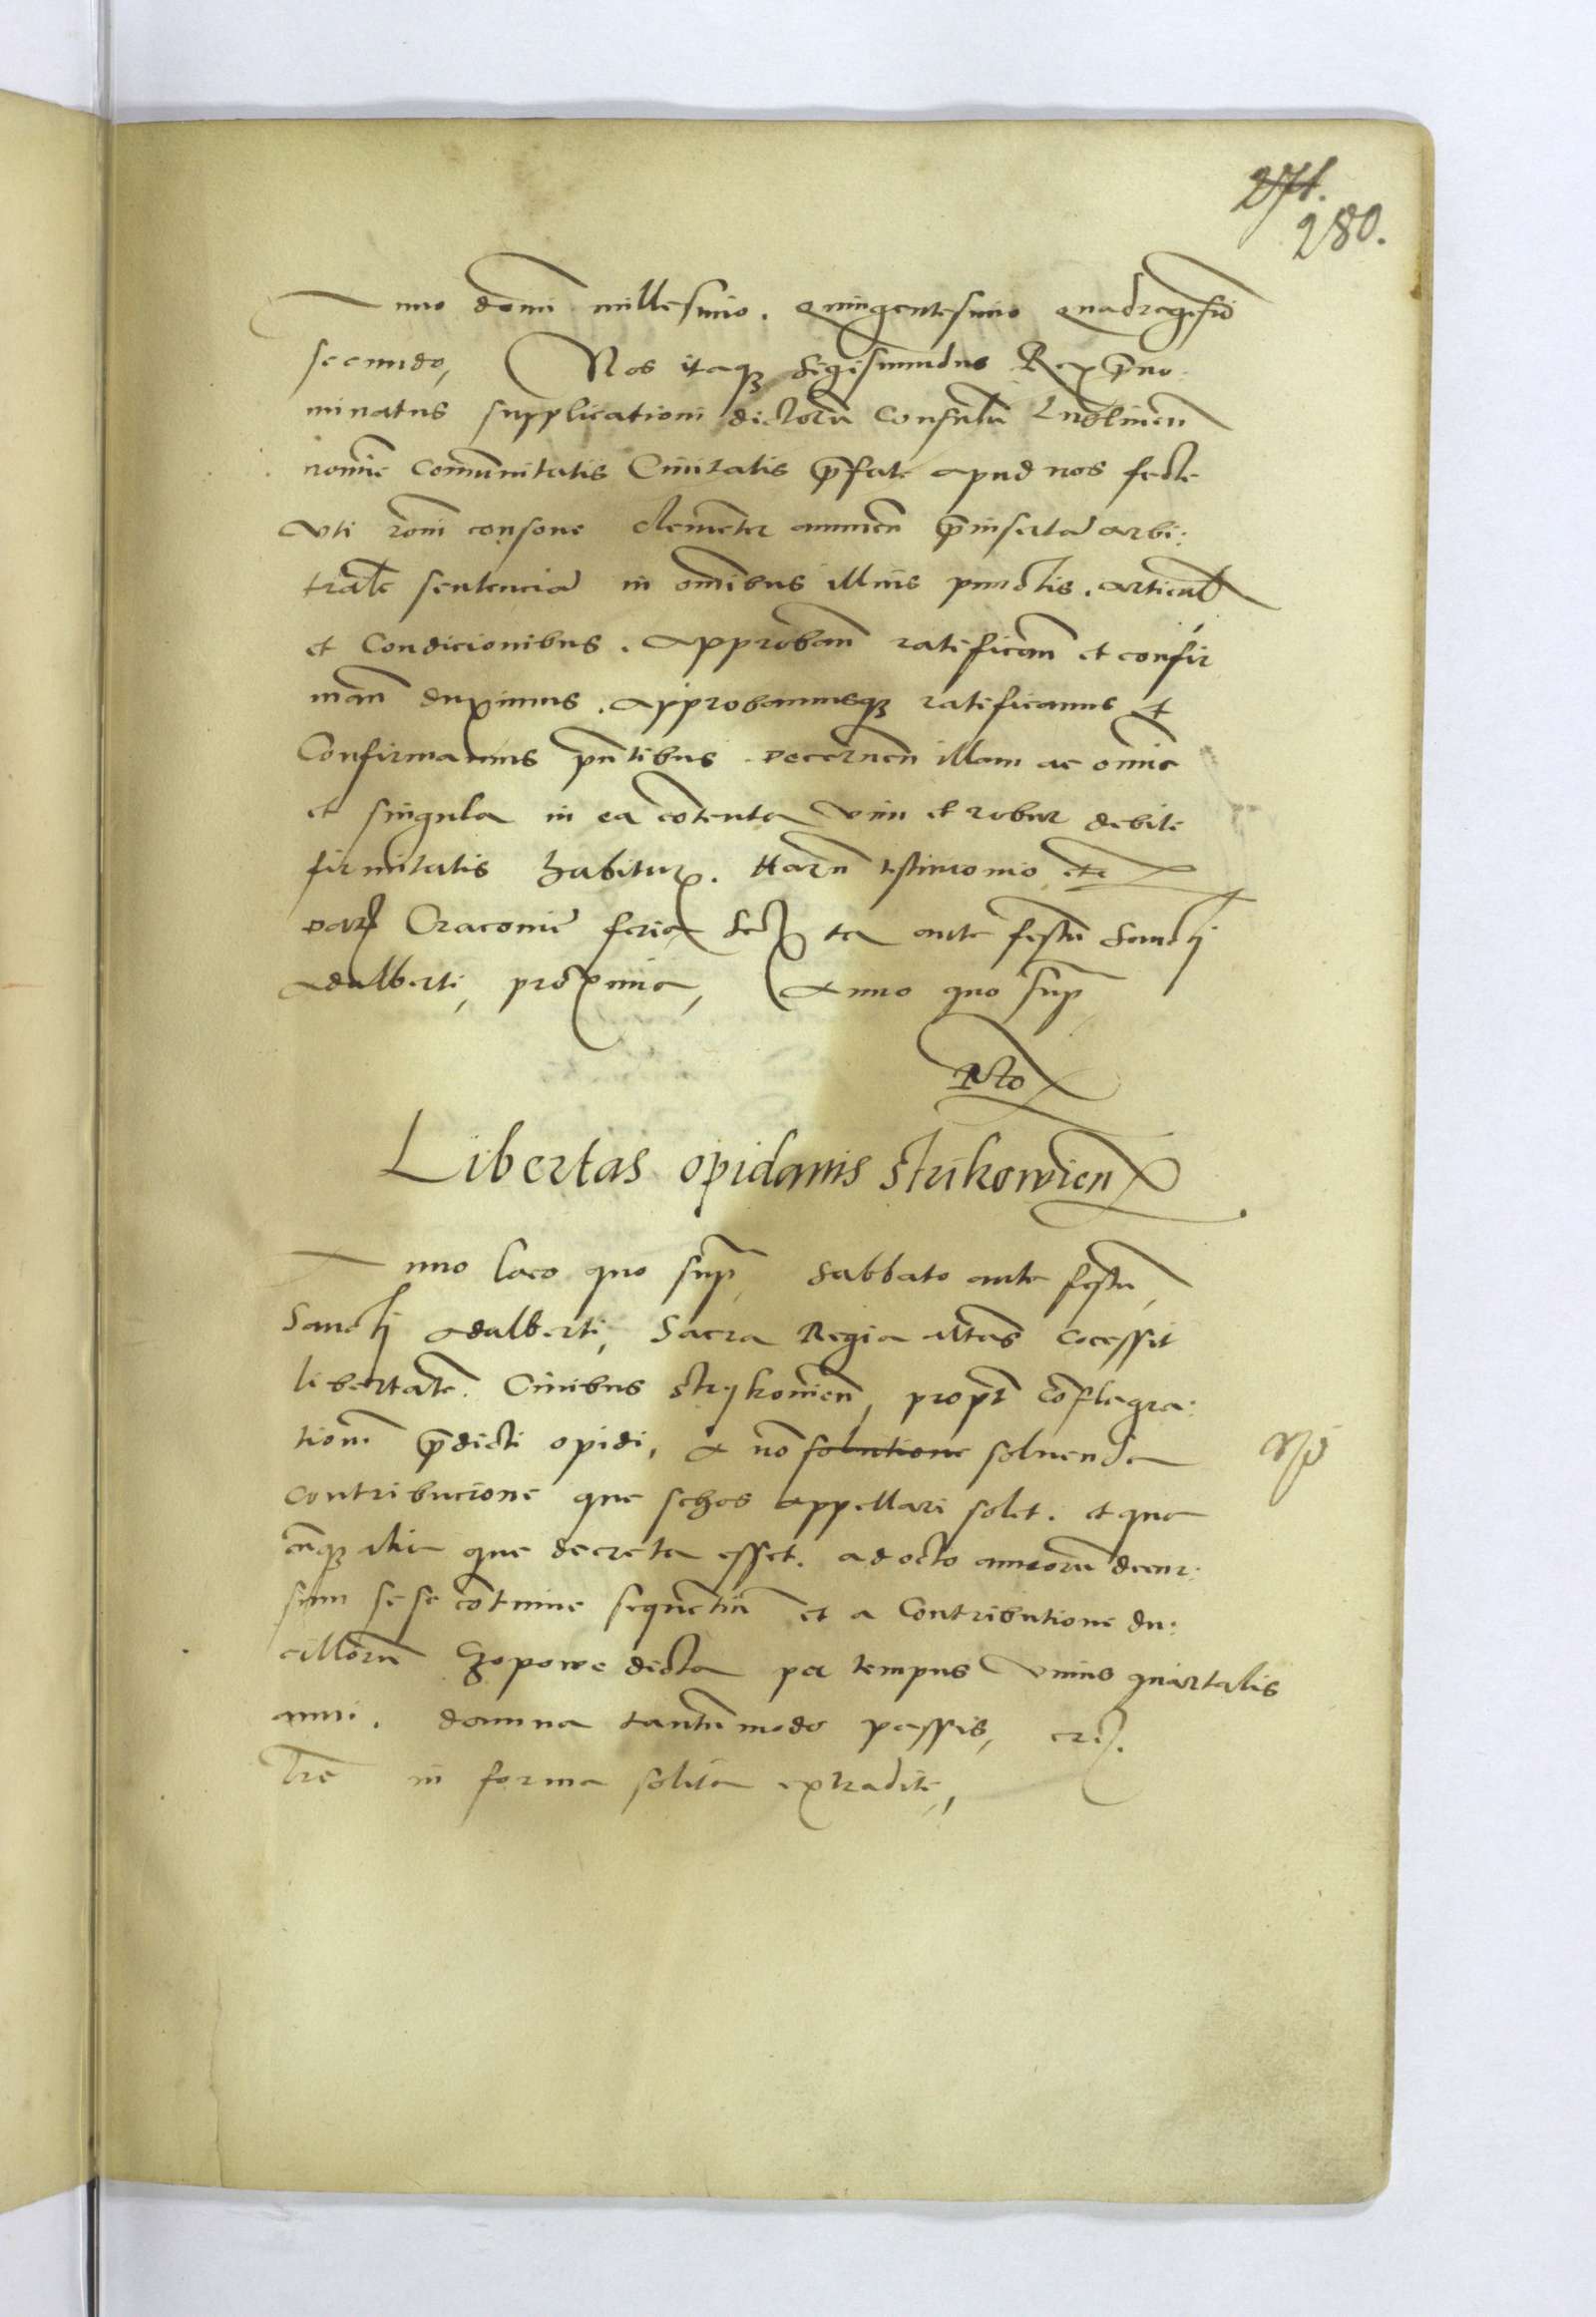 271.
280.
Anno domi millesimo. Quingentesimo quadragesio
secundo, Nos itaqз Sigismundus Rex p̄no
minatus supplicationi dictorū Consulū Lublineñ
nomīe Comunitatis Ciuitatis p̄fate apud nos facte
vti rōni consone clemēter annueñ p̄insertā arbi:
tralē sentenciā in omībus illius punctis. articul
et Condicionibus. Approbañ ratificañ et confir
mañ duximus. approbamusqз ratificamus et
Confirmamus pn̄tibus. Decerneñ illam ac omīa
et singula in ea cōtenta vim et robur debite
firmitatis habitur. Harū testimonio etc
Dat Cracouie feria sexta ante festū Sancti
Adalberti, proxima, Anno quo sup̄
Rto
Libertas opidanis strikowien
Anno loco quo sup̄, Sabbato ante festū,
Sancti Adalberti, Sacra Regia Mtas cōcessit
libertatē. Ciuibus Strykouieñ, propt̄ cōflagra:
tionē p̄dicti opidi, A nō solutione soluenda
contribucione que schos appellari solet. et qua
cūqз alia que decreta esset. ad octo annorū decur:
sum sese cōtinue sequētiū et a Contributione du:
cillorū Czopowe dicta per tempus vnius quartalis
anni. damna tantūmodo passis,
Lr̄e in forma solita extradite,